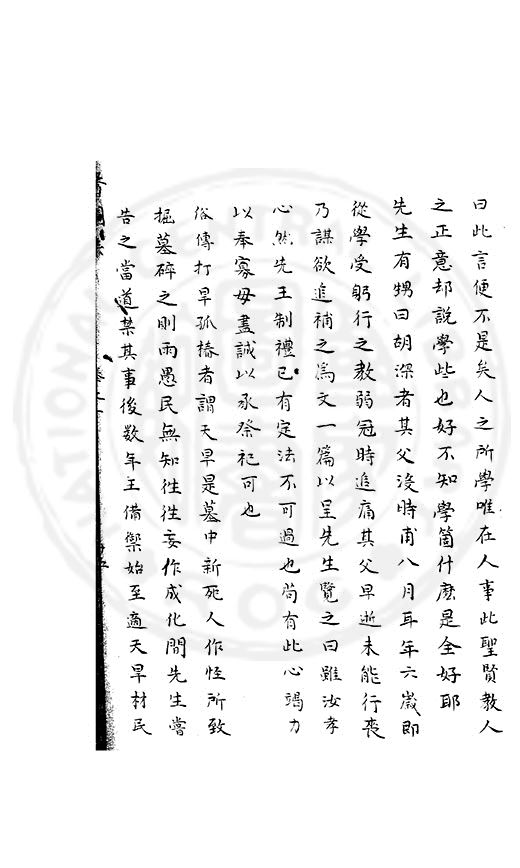 曰此言便不是矣人之所學唯在人事此聖賢教人
之正意却說學些也好不知學箇什麽是全好耶
先生有甥曰胡深者其父沒時甫八月耳年六歲即
從學受躬行之教弱冠時追痛其父早逝未能行喪
乃謀欲追補之爲文一篇以呈先生覽之曰雖汝孝
心然先王制禮已有定法不可過也苟有此心竭力
以奉寡母盡誠以承祭祀可也
俗傳打旱孤樁者謂天旱是墓中新死人作怪所致
掘墓碎之則雨愚民無知徃徃妄作成化間先生嘗
告之當道禁其事後数年王備禦始至適天旱材民